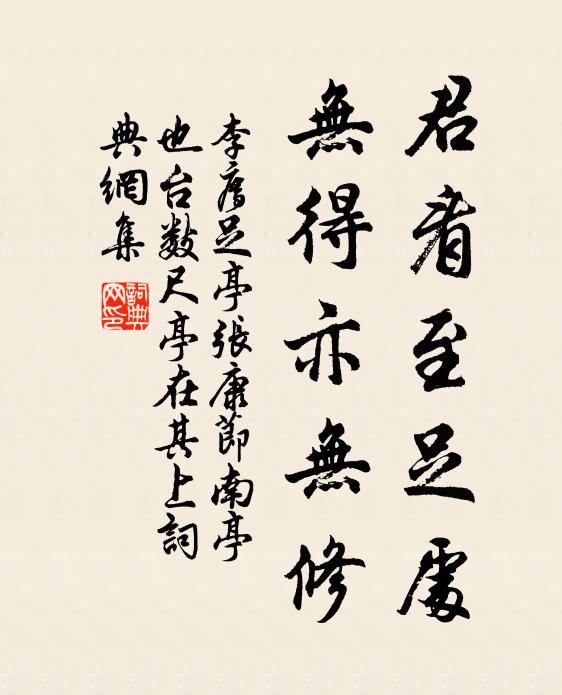 君看至足處
無得亦無修
李廌足亭張康節南亭
也台數尺亭在其上詞
典網集
詞典網印